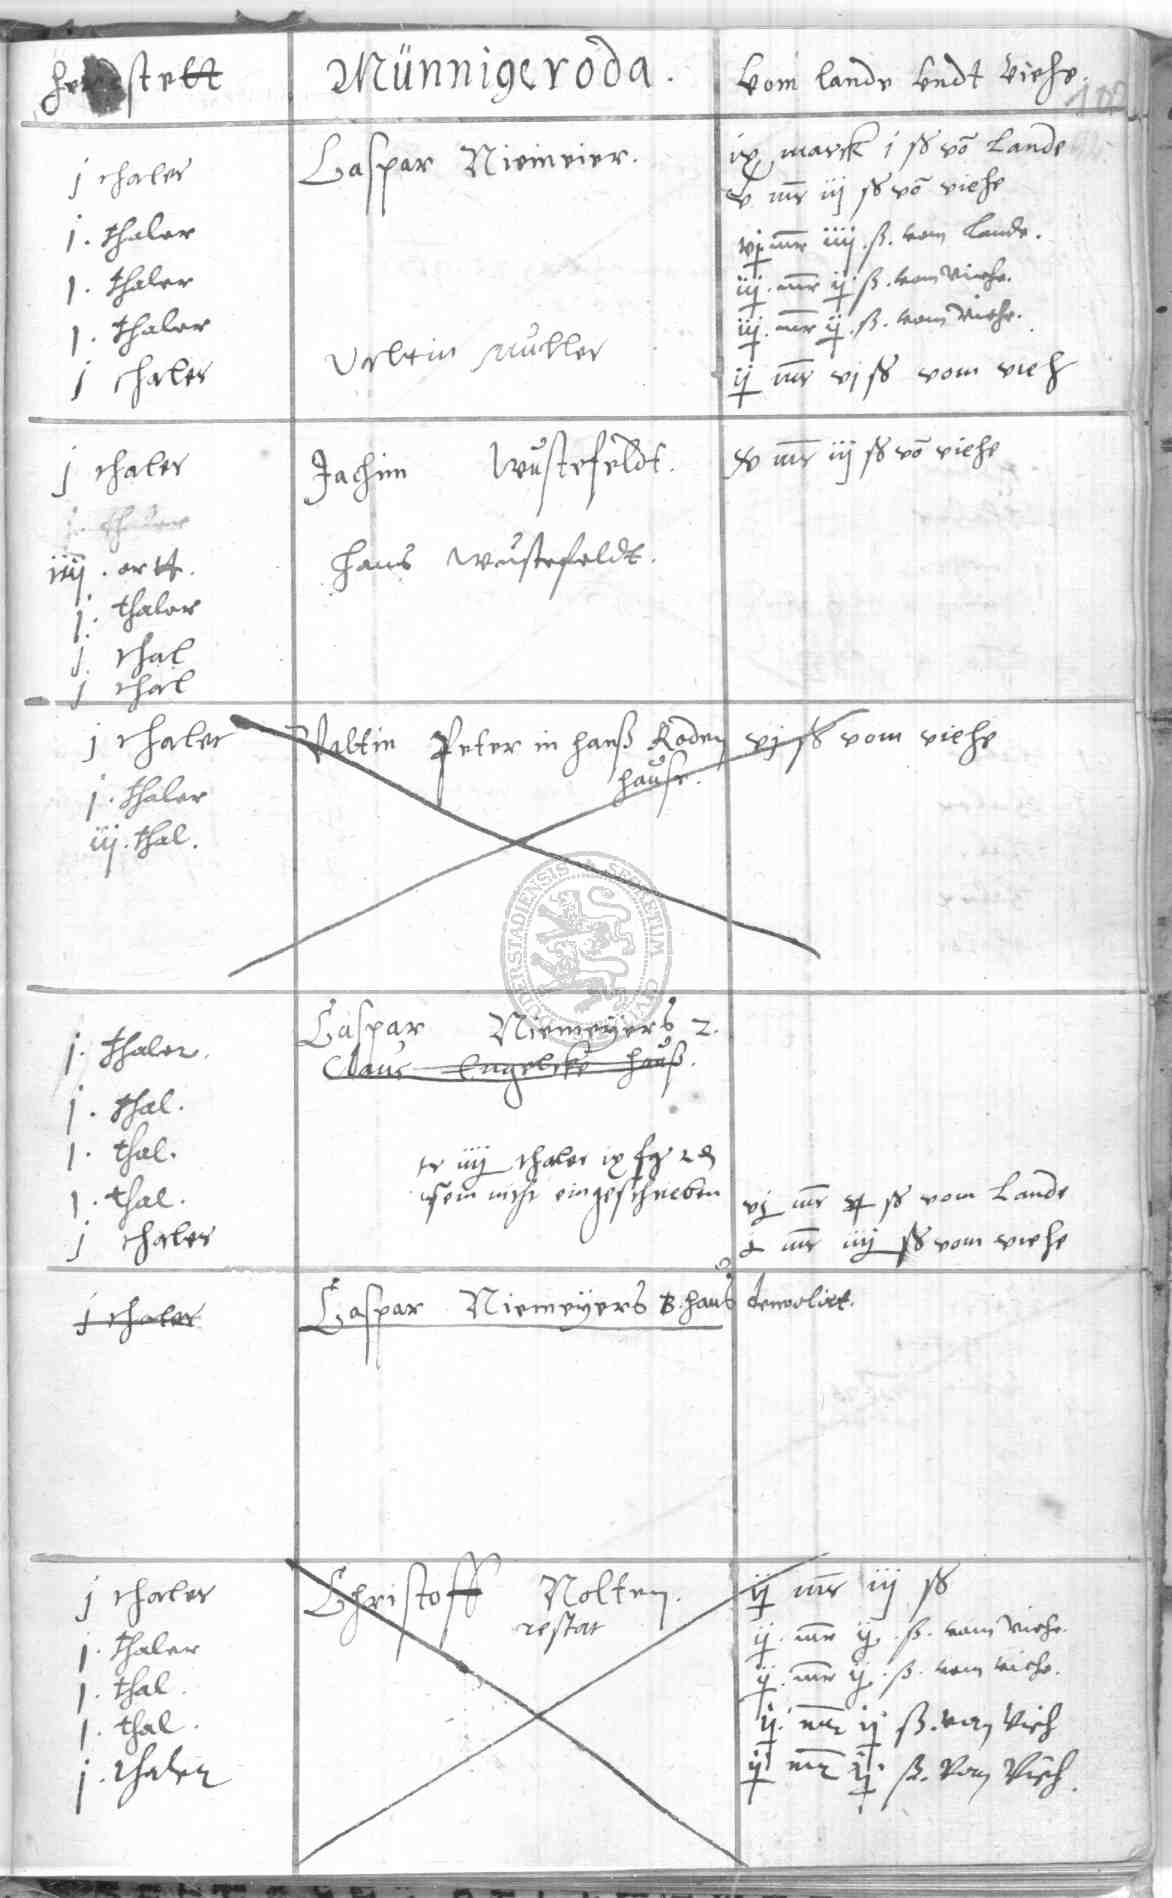 Münnigeroda. vom lande vndt viehe.
j thaler Caspar Niemeier. ix marck j ß vō Lande
v mr iij ß vō viehe
j. thaler vj mr iiij. ß. vom Lande.
j. thaler iij. mr ij. ß. vom viehe.
j. thaler iij. mr ij. ß. vom viehe.
j thaler Valtin Muller ij mr vj ß vom vieh
j thaler Jachim Wustefeldt. mr iij ß vō viehe
j. thaler
iiij. ortt. Hans Wustefeldt.
j. thaler
j thal
j thal
j thaler Valtin Peter in hanß Roden vj ß vom viehe
hause.
j. thaler
iij. thal.
Caspar Niemeyers 2.
j. thaler. Claus Engelcke hauß.
j. thal.
j. thal. iiij thaler ix
sein nicht eingeschrieben
j. thal. vj mr ß vom Lande
j thaler mr iiij ß vom viehe
j thaler Caspar Niemeyers 3. haus demolirt.
j thaler Christoff Nolten. ij mr iij ß
restat
j. thaler ij. mr ij. ß. vom viehe.
j. thal. ij. mr ij. ß. vom viehe.
j. thal. ij. mr ij ß. vom Vieh
j. thaler ij mr ij. ß. vom Vieh.